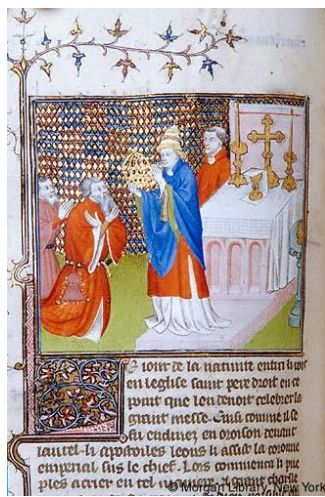 iour de la natiuite entra li rois
en leglise saint pere droit en ce
point que len deuoit celebrer la
grant messe. Ensi comme il se
fu enclinez en oroison deuant
lautel. li apostoiles leons li assist la coronne
emperial sus le chief. Lors commenca li pue
ples a crier en tel maniere.
© Morgan Library, New York